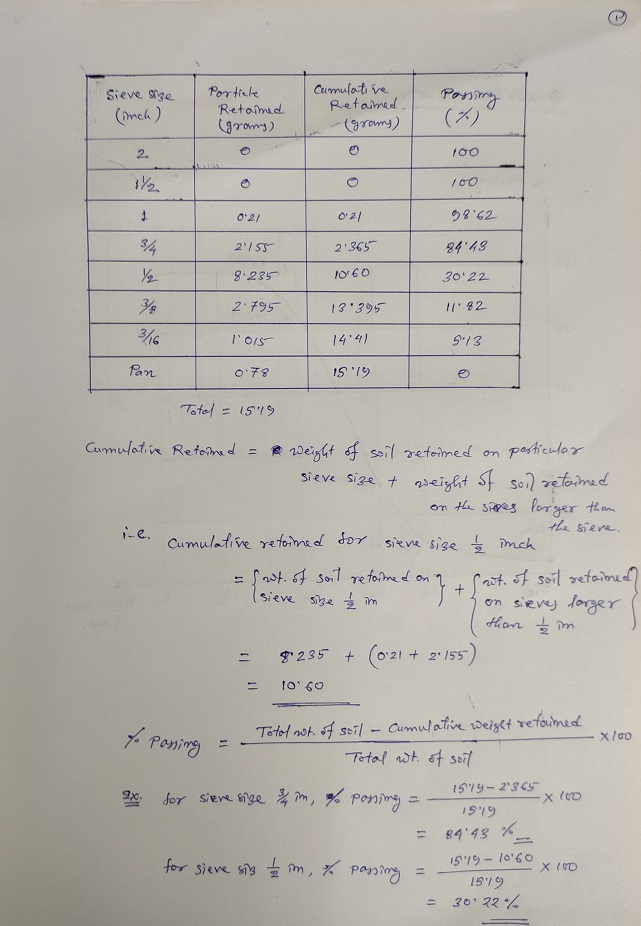 1
Sieve size (inch) Particle Retained (grams) Cumulative Retained (grams) Passing (%)
2 0 0 100
1½ 0 0 100
1 0.21 0.21 98.62
3/4 2.155 2.365 84.43
½ 8.235 10.60 30.22
3/8 2.795 13.395 11.82
3/16 1.015 14.41 5.13
Pan 0.78 15.19 0
Total = 15.19
Cumulative Retained = weight of soil retained on particular
sieve size + weight of soil retained
on the sieves larger than
the sieve.
i-e. Cumulative retained for sieve size 1/2 inch
= {wt. of soil retained on sieve size 1/2 in} + {wt. of soil retained on sieves larger than 1/2 in}
= 8.235 + (0.21 + 2.155)
= 10.60
% Passing = Total wt. of soil - Cumulative weight retained / Total wt. of soil × 100
ex. for sieve size 3/4 in, % Passing = 15.19 - 2.365 / 15.19 × 100
= 84.43 %
for sieve siz 1/2 in, % Passing = 15.19 - 10.60 / 15.19 × 100
= 30.22 %